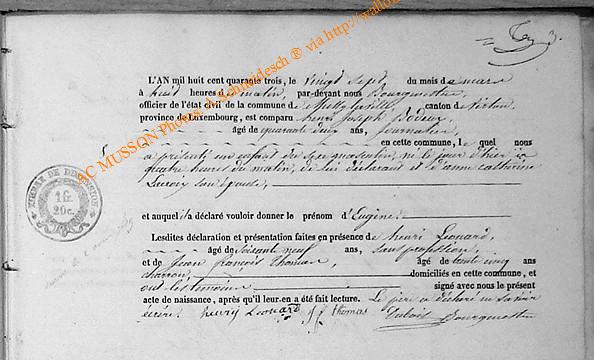 L'AN mil huit cent quarante trois, le vingt sept du mois de mars
à huit heures du matin, par-devant nous Bourgmestre
officier de l'état civil de la commune de canton de Virton,
province de Luxembourg, est comparu henri Joseph
âgé de quarante deux ans, journalier,
en cette commune, le quel nous
a présenté un enfant du sexe masculin, né le jour d'hier à
quatre heures du matin, de lui déclarant et d'anne catherine
Lacroix son épouse,
et auquel il a déclaré vouloir donner le prénom d'Eugène
Lesdites déclaration et présentation faites en présence de henri Léonard,
âgé de soixante neuf ans, sans profession,
et de Jean françois thomas, âgé de trente cinq ans
charron, domiciliés en cette commune, et
ont les témoins signé avec nous le présent
acte de naissance, après qu'il leur en a été fait lecture. Le père a déclaré ne savoir
écrire. henry Leonard j f thomas
Bourgmestre
TIMBRE DE DIMENSION
1 fr.
20 c.
MUSSON
® via http://wallo